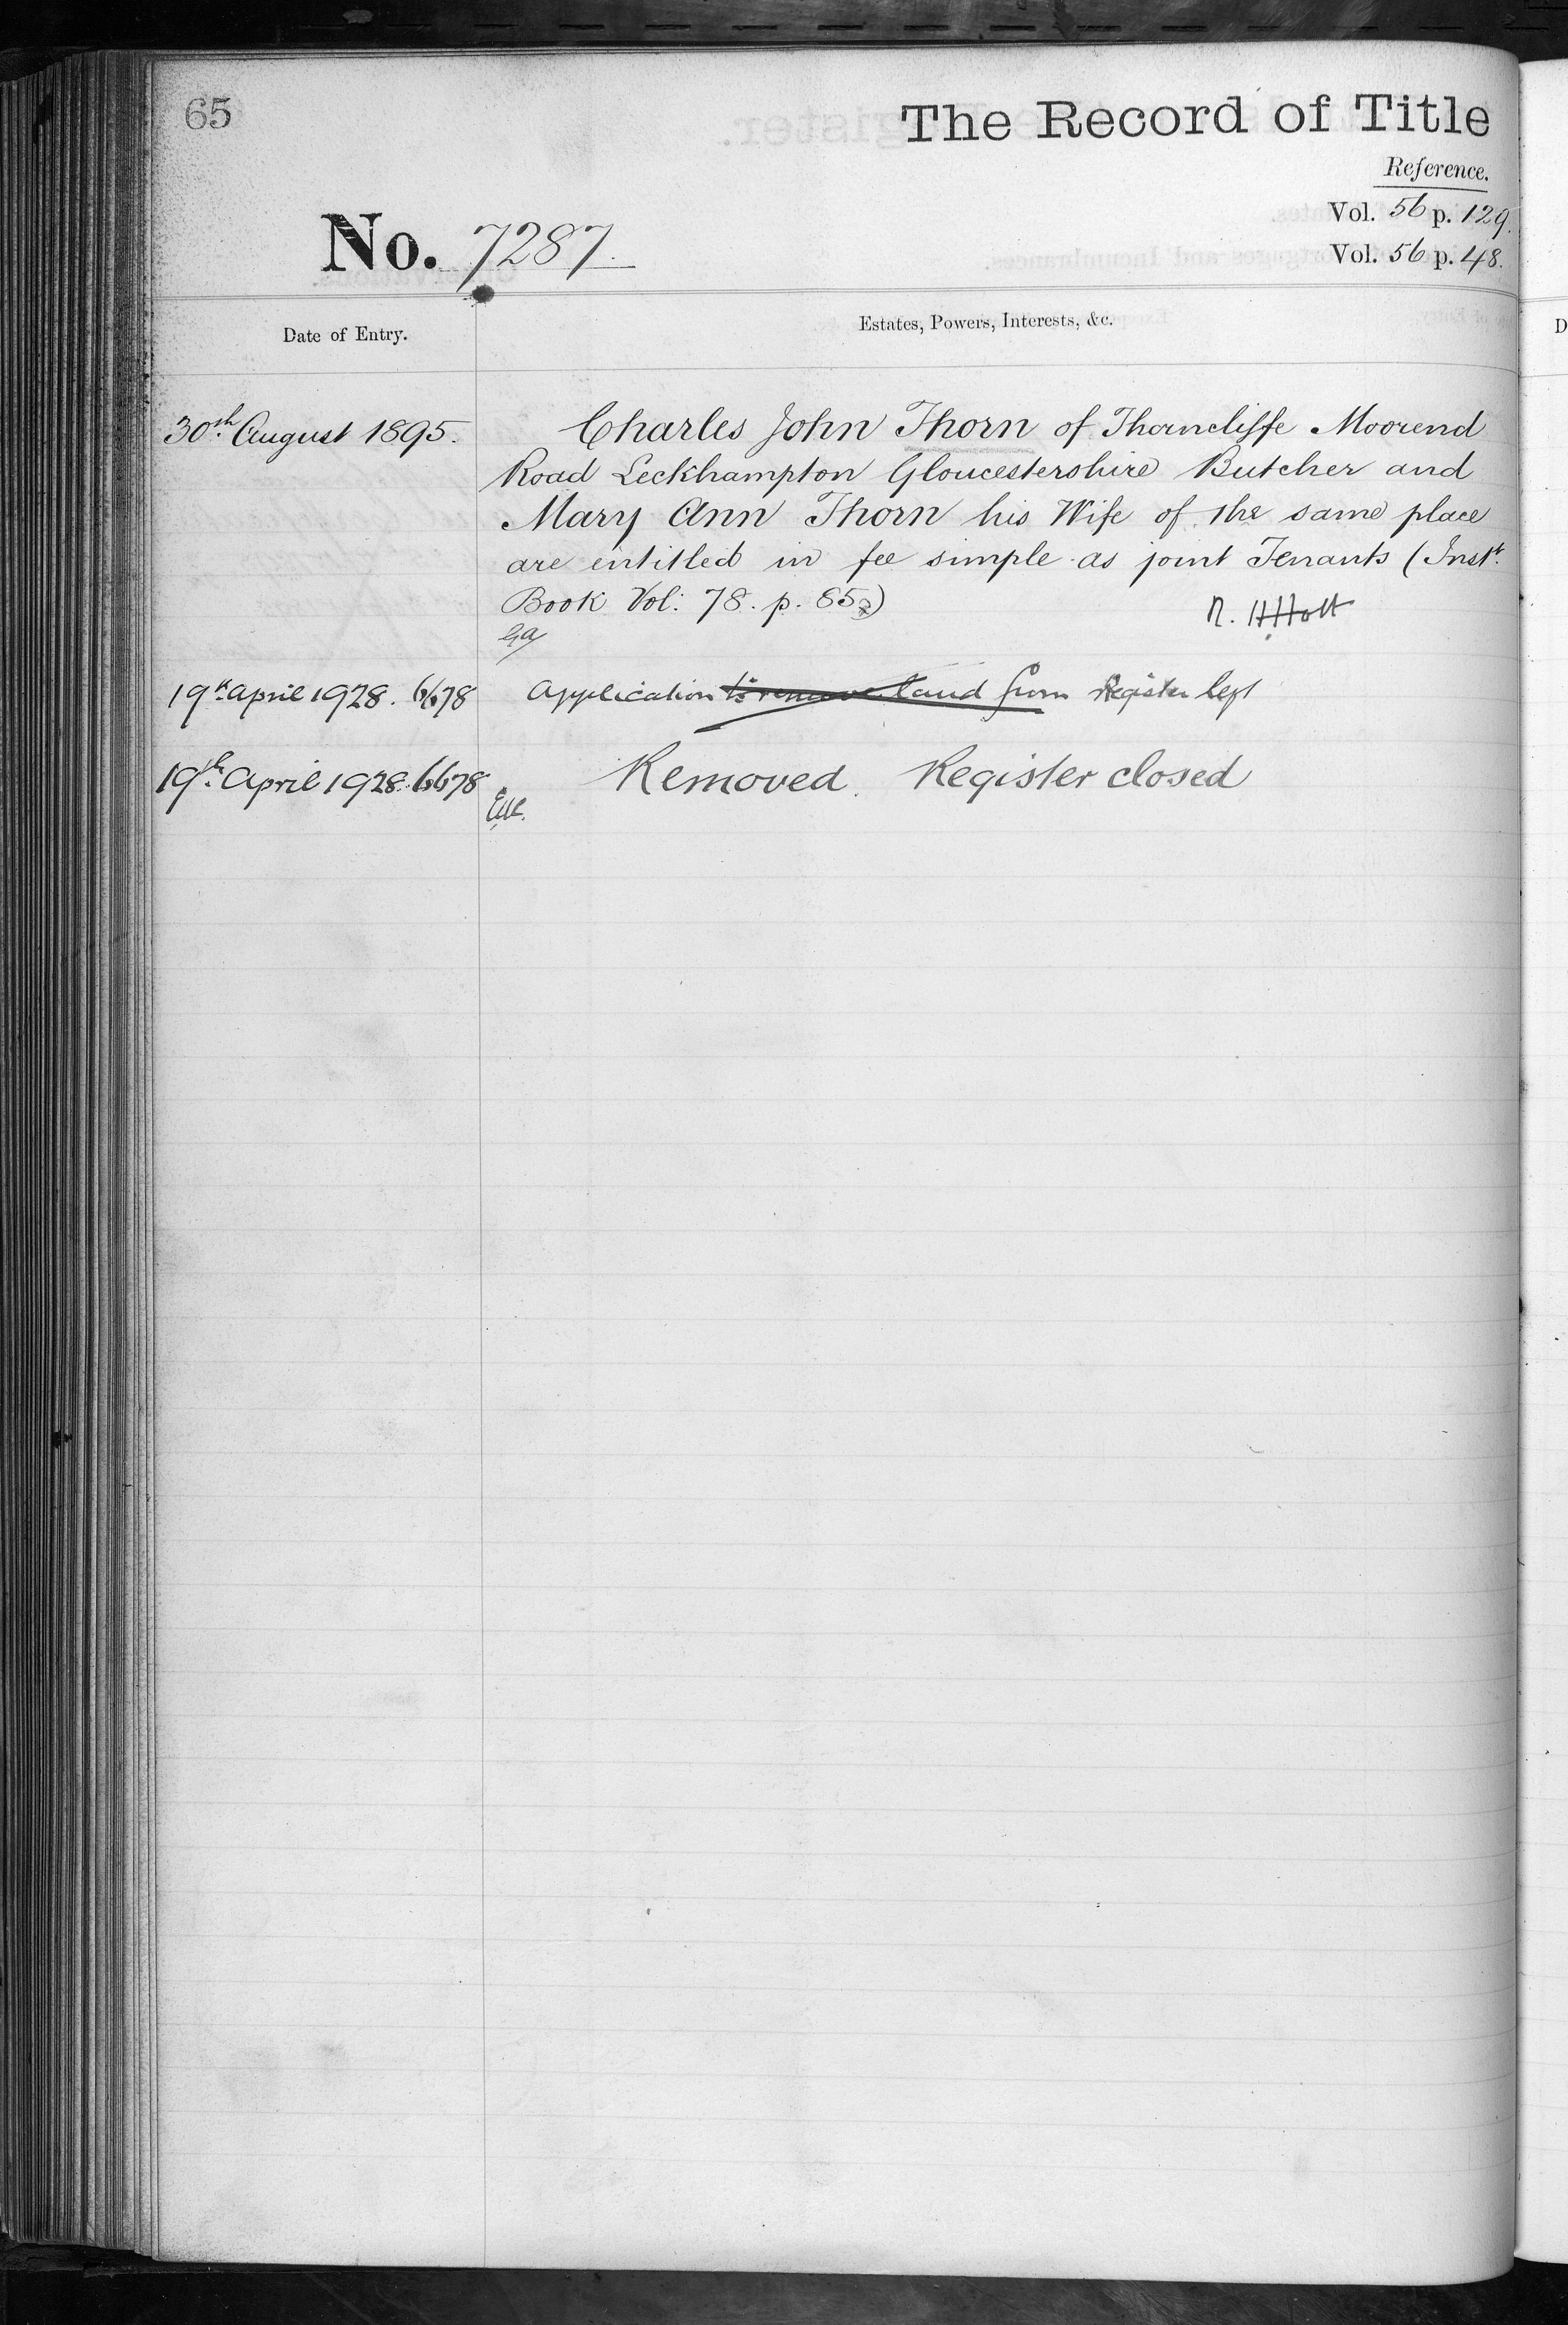 65
The Record of Title
Reference.
Vol. 56 p. 129.
No. 7287.
Vol. 56 p. 48.
Date of Entry.
Estates, Powers, Interests, &c.
30th August 1895.
Charles John Thorn of Thorncliffe Moorend
Road Leckhampton Gloucestershire Butcher and
Mary Ann Thorn his Wife of the same place
are entitled in fee simple as joint Tenants (Instt.
Book Vol: 78. p. 65)
19th April 1928. 6678
Application to remove land from Register left
19th April 1928. 6678
Removed. Register closed
D